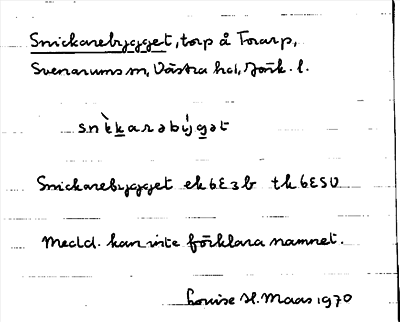 Snickarebygget, torp å Torarp,
Svenarums sn, Västra hd, Jönk. l.
snèkarəbýgət
Snickarebygget ek 6E3b tk 6E5U
Medd. kan inte förklara namnet.
Louise H. Maas 1970